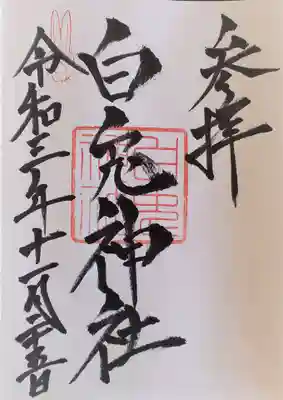 参拝
白兎神社
令和三年十一月二十五日